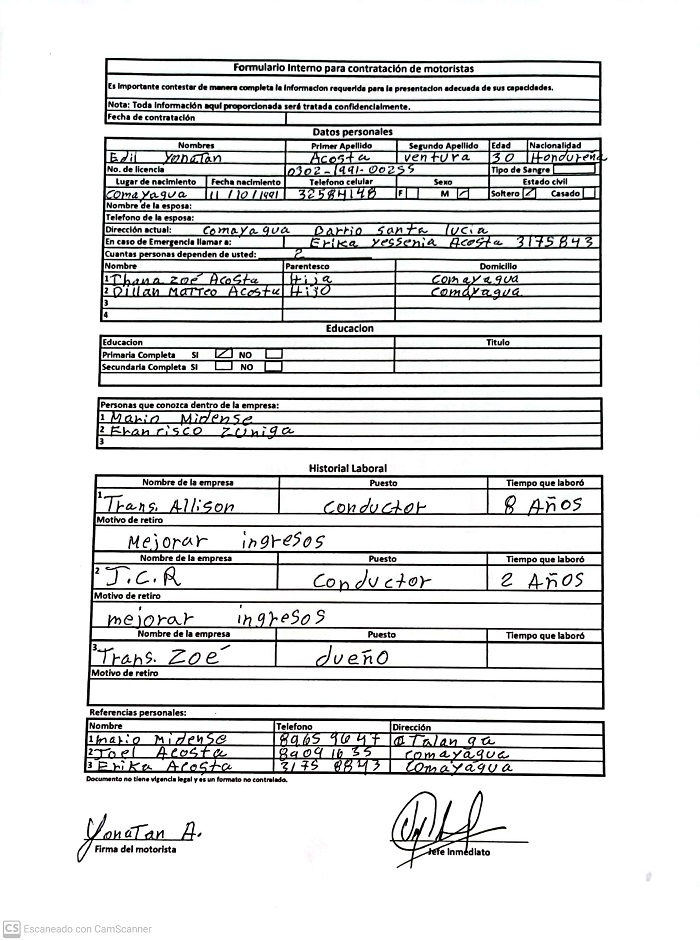 Formulario Interno para contratación de motoristas
Es importante contestar de manera completa la informacion requerida para la presentacion adecuada de sus capacidades.
Nota: Toda información aqui proporcionada será tratada confidencialmente.
Fecha de contratación
Datos personales
Nombres Primer Apellido Segundo Apellido Edad Nacionalidad
Edil Yonatan Acosta Ventura 30 Hondureña
No. de licencia 0302-1991-00255 Tipo de Sangre
Lugar de nacimiento Fecha nacimiento Telefono celular Sexo Estado civil
Comayagua 11/10/1991 32584148 F M Soltero Casado
Nombre de la esposa:
Telefono de la esposa:
Dirección actual: Comayagua Barrio santa lucia
En caso de Emergencia llamar a: Erika Yessenia Acosta 3175843
Cuantas personas dependen de usted: 2
Nombre Parentesco Domicilio
1 Thana Zoé Acosta Hija Comayagua
2 Dillan Matteo Acosta Hijo Comayagua
3
4
Educacion
Educacion Titulo
Primaria Completa SI NO
Secundaria Completa SI NO
Personas que conozca dentro de la empresa:
1 Mario Midense
2 Francisco Zuniga
3
Historial Laboral
Nombre de la empresa Puesto Tiempo que laboró
1 Trans. Allison Conductor 8 Años
Motivo de retiro
Mejorar ingresos
Nombre de la empresa Puesto Tiempo que laboró
2 J.C.R Conductor 2 Años
Motivo de retiro
mejorar ingresos
Nombre de la empresa Puesto Tiempo que laboró
3 Trans. Zoé dueño
Motivo de retiro
Referencias personales:
Nombre Telefono Dirección
1 mario Midense 8965 9647 Talanga
2 Joel Acosta 8909 1635 Comayagua
3 Erika Acosta 3175 8843 Comayagua
Documento no tiene vigencia legal y es un formato no controlado.
Yonatan A.
Firma del motorista Jefe Inmediato
CS Escaneado con CamScanner